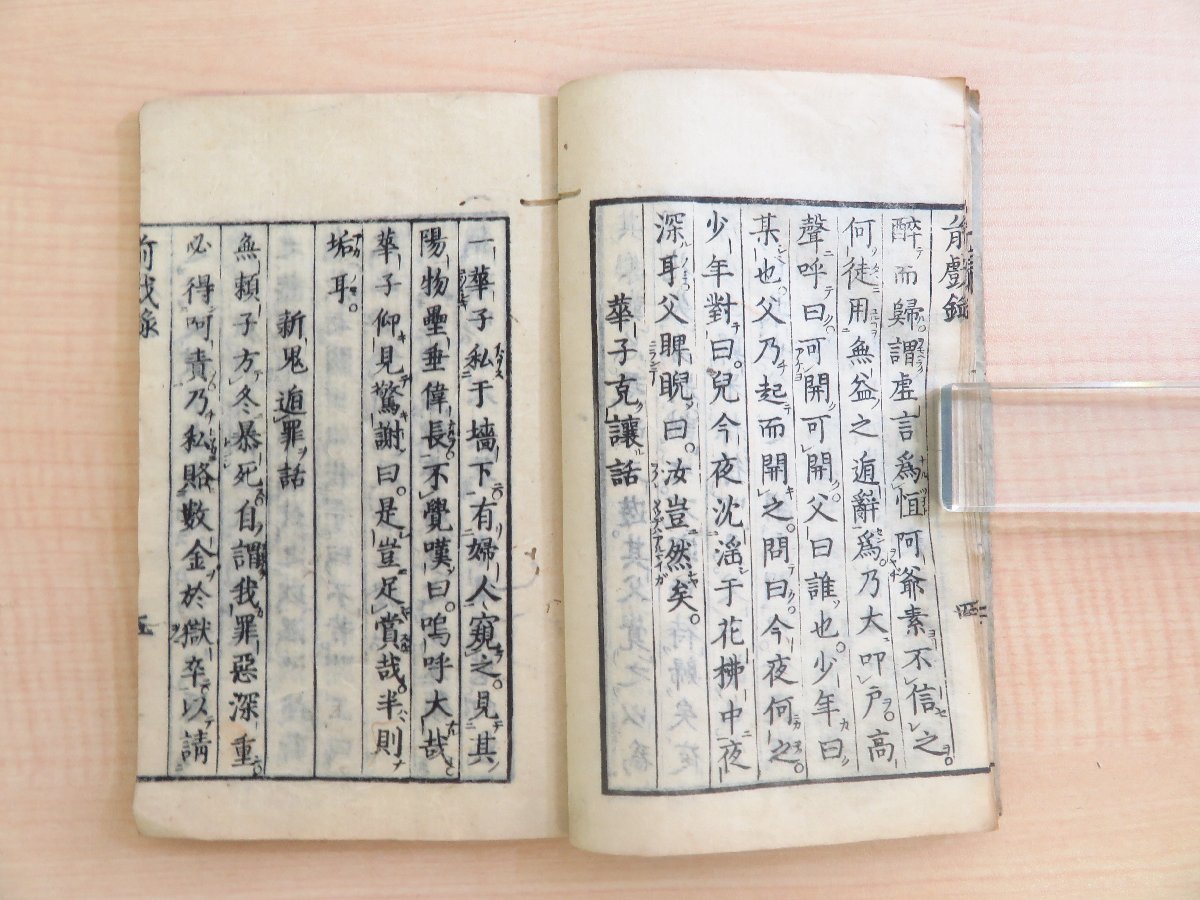 酔而歸謂虚言爲恒阿爺素不信之
何徒用無益之遁辭爲乃大叩戸高
聲呼曰可開可開父曰誰也少年曰
某也父乃起而開之問曰今夜何之
少年對曰兒今夜沈淫于花柳中夜
深耳父睥睨曰汝豈然矣
華子克讓話
一華子私于墻下有婦人窺之見其
陽物壘垂偉長不覺嘆曰嗚呼大哉
華子仰見驚謝曰是豈足賞哉半則
垢耳
新鬼遁罪話
無賴子方冬暴死自謂我罪惡深重
必得呵責乃私賂數金於獄卒以請